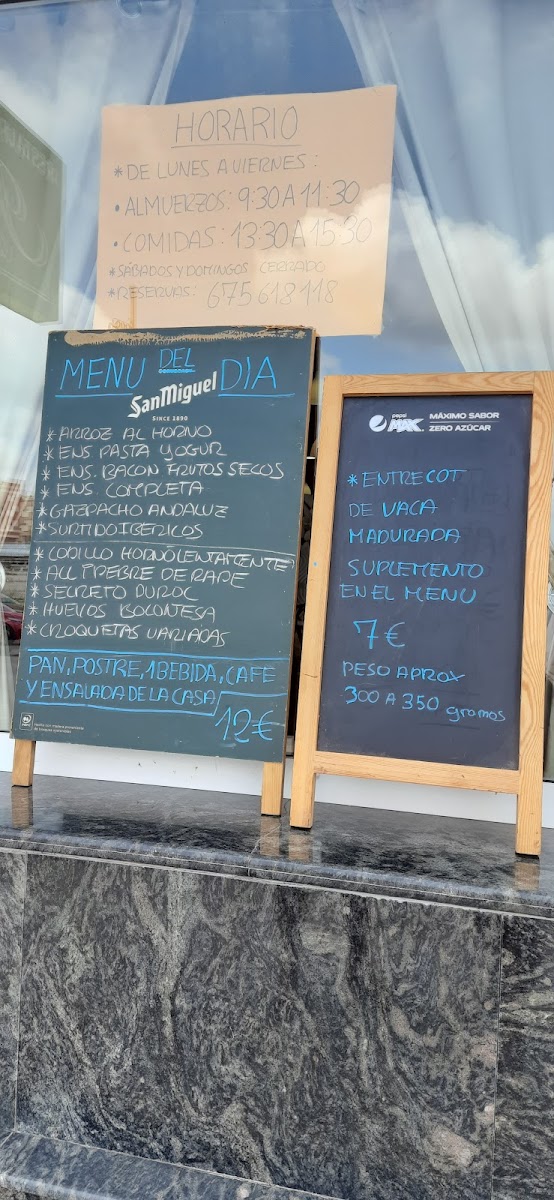 HORARIO
* DE LUNES A VIERNES:
• ALMUERZOS: 9:30 A 11:30
• COMIDAS: 13:30 A 15:30
* SÁBADOS Y DOMINGOS CERRADO
* RESERVAS: 675618118
MENU DEL DIA
SanMiguel
SINCE 1890
* ARROZ AL HORNO
* ENS PASTA YOGUR
* ENS. BACON FRUTOS SECOS
* ENS. COMPLETA
* GAZPACHO ANDALUZ
* SURTIDO IBERICOS
* CODILLO HORNO LENTAMENTE
* ALL I PEBRE DE RAPE
* SECRETO DUROC
* HUEVOS BOLOÑESA
* CROQUETAS VARIADAS
PAN, POSTRE, 1 BEBIDA, CAFE
Y ENSALADA DE LA CASA
12€
pepsi MAX.
MÁXIMO SABOR
ZERO AZÚCAR
* ENTRECOT
DE VACA
MADURADA
SUPLEMENTO
EN EL MENU
7€
PESO APROX
300 A 350 gramos